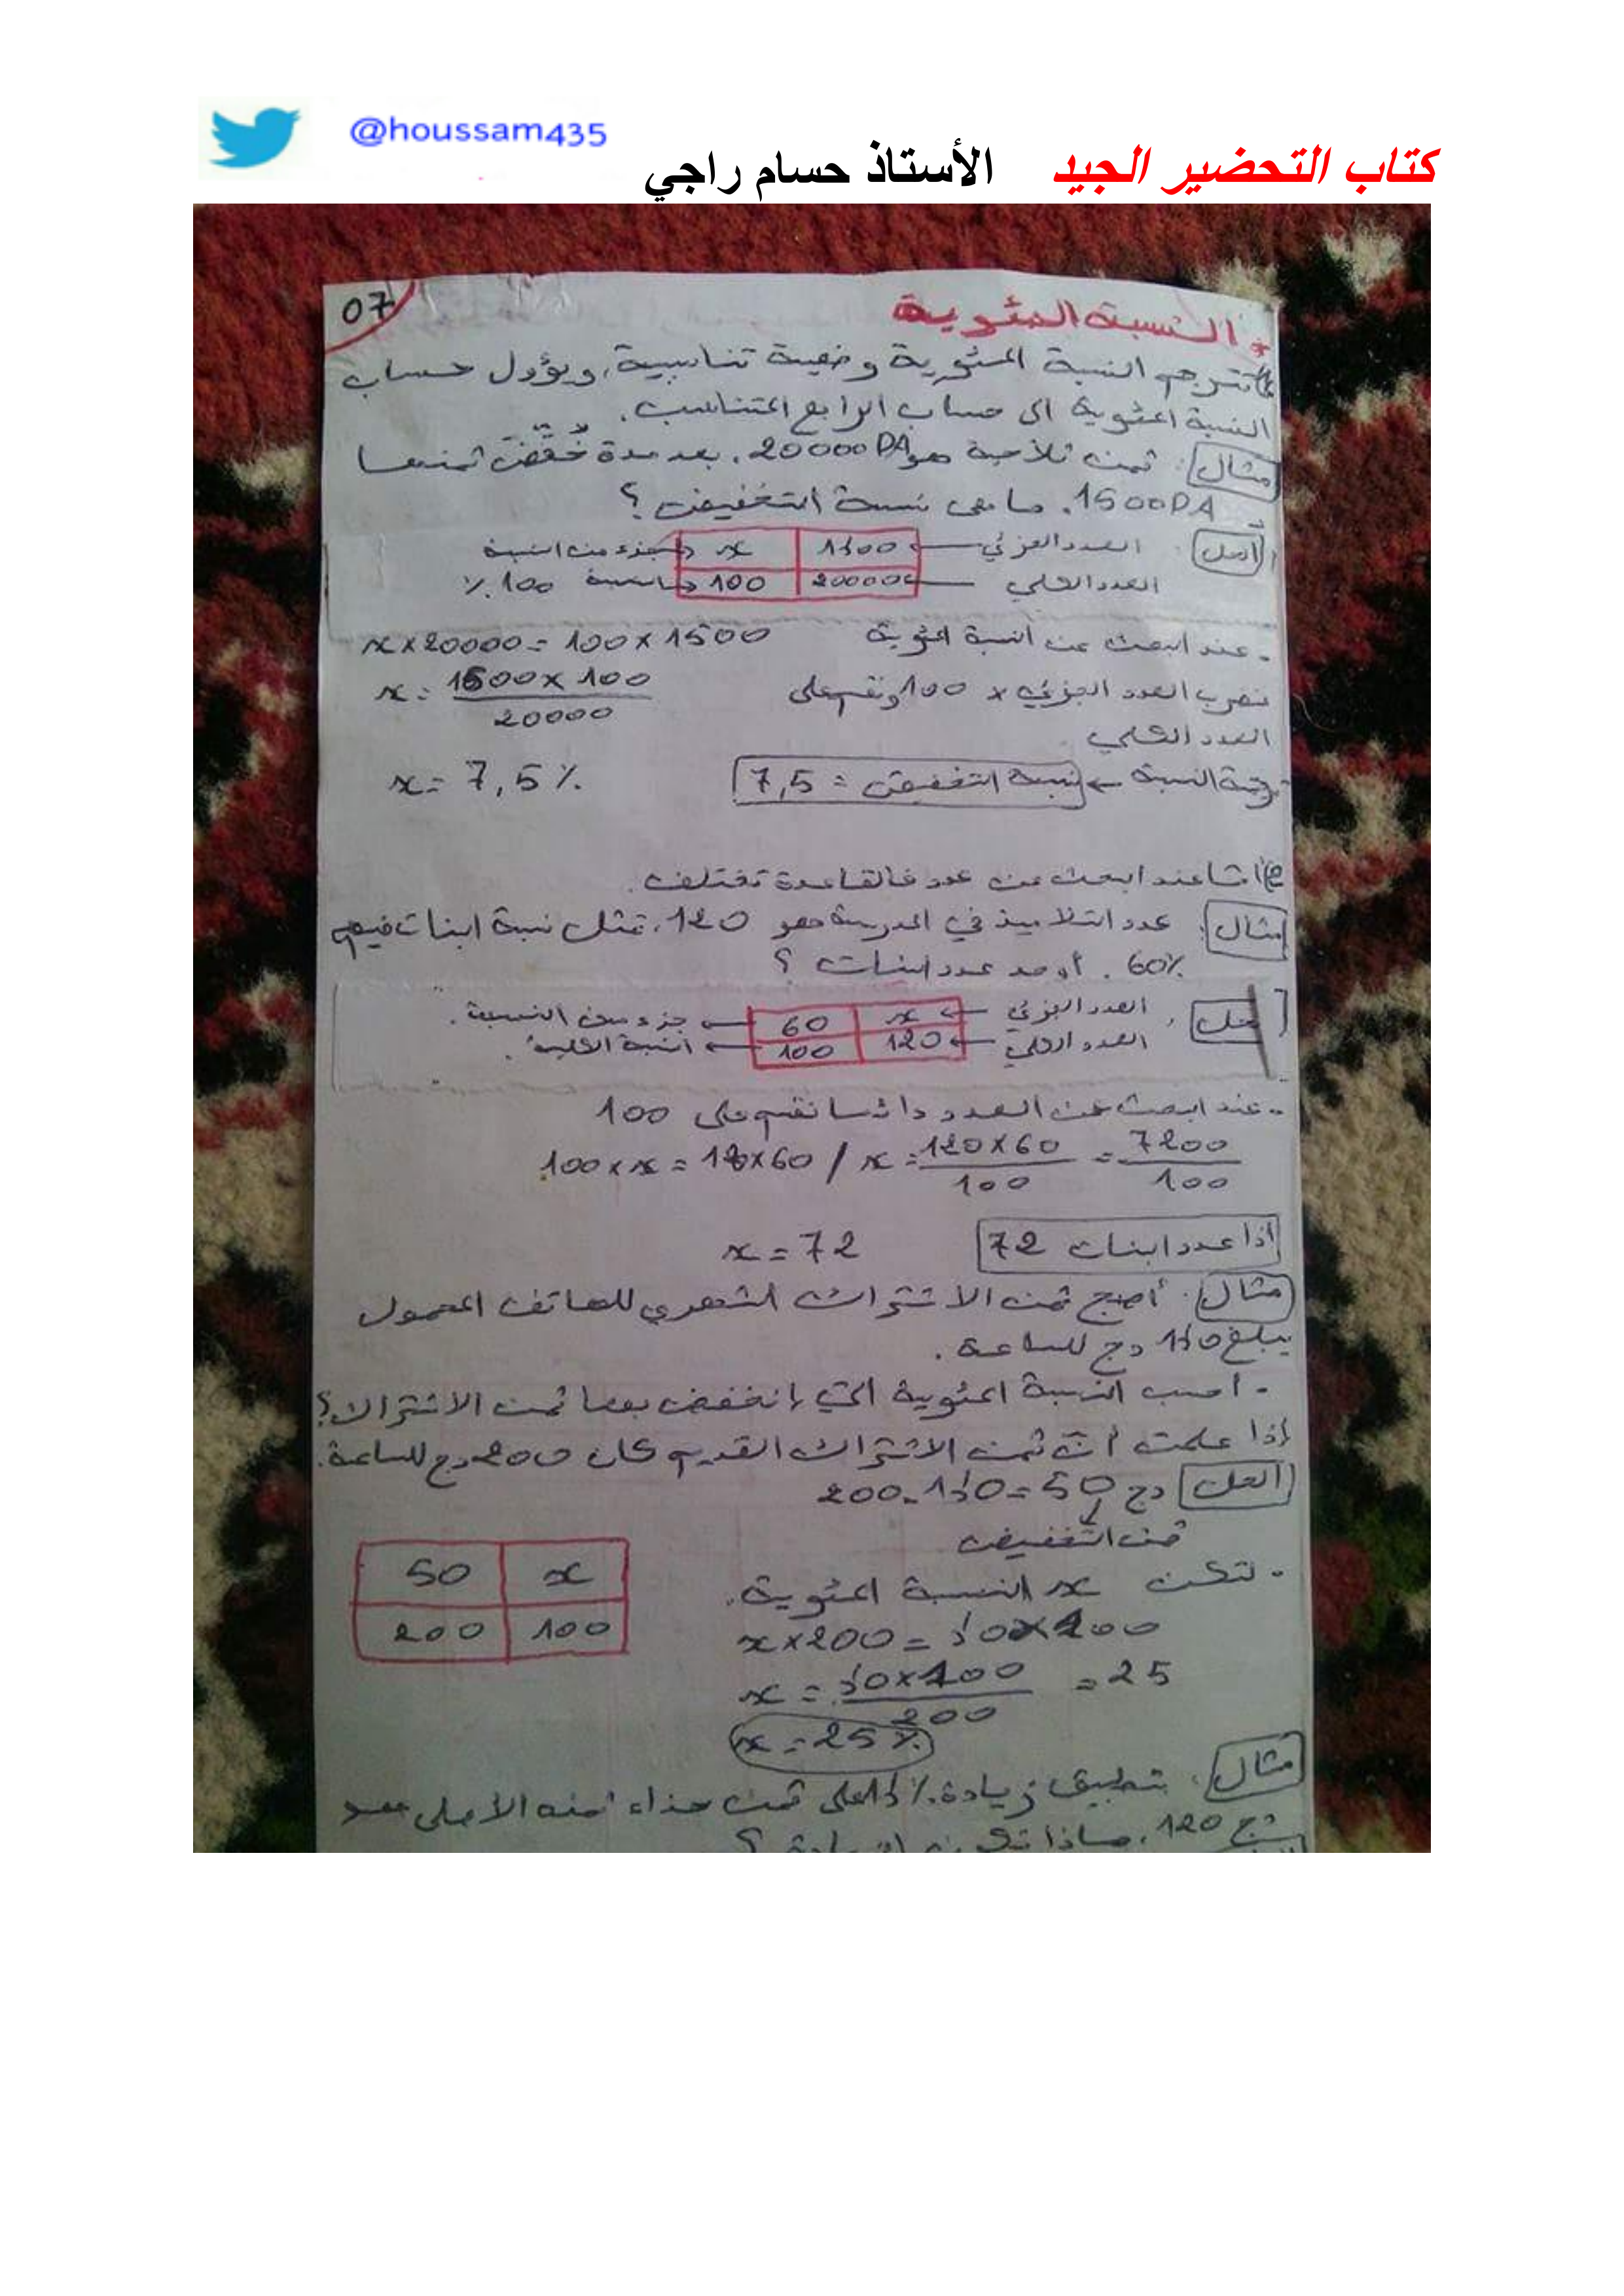 @houssam435
كتاب التحضير الجيد الأستاذ حسام راجي
07
* النسبة المئوية
تترجم النسبة المئوية وضعية تناسبية، ويؤول حساب
النسبة المئوية الى حساب الرابع المتناسب.
مثال: ثمن ثلاجة هو 20000DA. بعد مدة خُفّضَ ثمنها
1500DA. ما هي نسبة التخفيض؟
الحل: العدد الجزئي ← 1500 | x → جزء من النسبة
العدد الكلي ← 20000 | 100 → النسبة 100 %
- عند البحث عن النسبة المئوية x×20000=100×1500
نضرب العدد الجزئي × 100 ونقسم على x = 1500×100 / 20000
العدد الكلي
النسبة ← نسبة التخفيض = 7,5 x = 7,5 %
2) أما عند البحث عن عدد فالقاعدة تختلف.
مثال: عدد التلاميذ في المدرسة هو 120، تمثل نسبة البنات فيهم
60%. أوجد عدد البنات؟
حل: العدد الجزئي ← x | 60 → جزء من النسبة.
العدد الكلي ← 120 | 100 → النسبة الكلية.
- عند البحث عن العدد دائما نقسم على 100
100×x = 120×60 / x = 120×60 / 100 = 7200 / 100
اذا عدد البنات 72 x = 72
مثال: أصبح ثمن الاشتراك الشهري للهاتف المحمول
يبلغ 150 دج للساعة.
- احسب النسبة المئوية التي إنخفض بها ثمن الاشتراك؟
إذا علمت أنّ ثمن الاشتراك القديم كان 200 دج للساعة.
الحل 200-150=50 دج
ثمن التخفيض
- لتكن x النسبة المئوية.
50 | x
200 | 100
x×200 = 50×100
x = 50×100 / 200 = 25
x = 25%
مثال: بتطبيق زيادة 15% على ثمن حذاء ثمنه الأصلي هو
120 دج